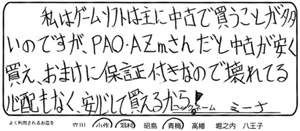 私はゲームソフトは主に中古で買うことが多
いのですが、PAO・AZmさんだと中古が安く
買え、おまけに保証付きなので壊れてる
心配もなく、安心して買えるから!
ペンネーム ミーナ
よく利用されるお店を 立川 小作 羽村 昭島 青梅 高幡 堀之内 八王子